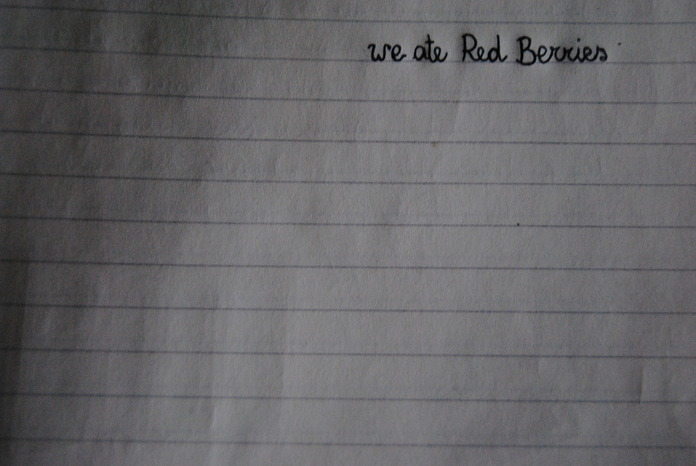 we ate Red Berries